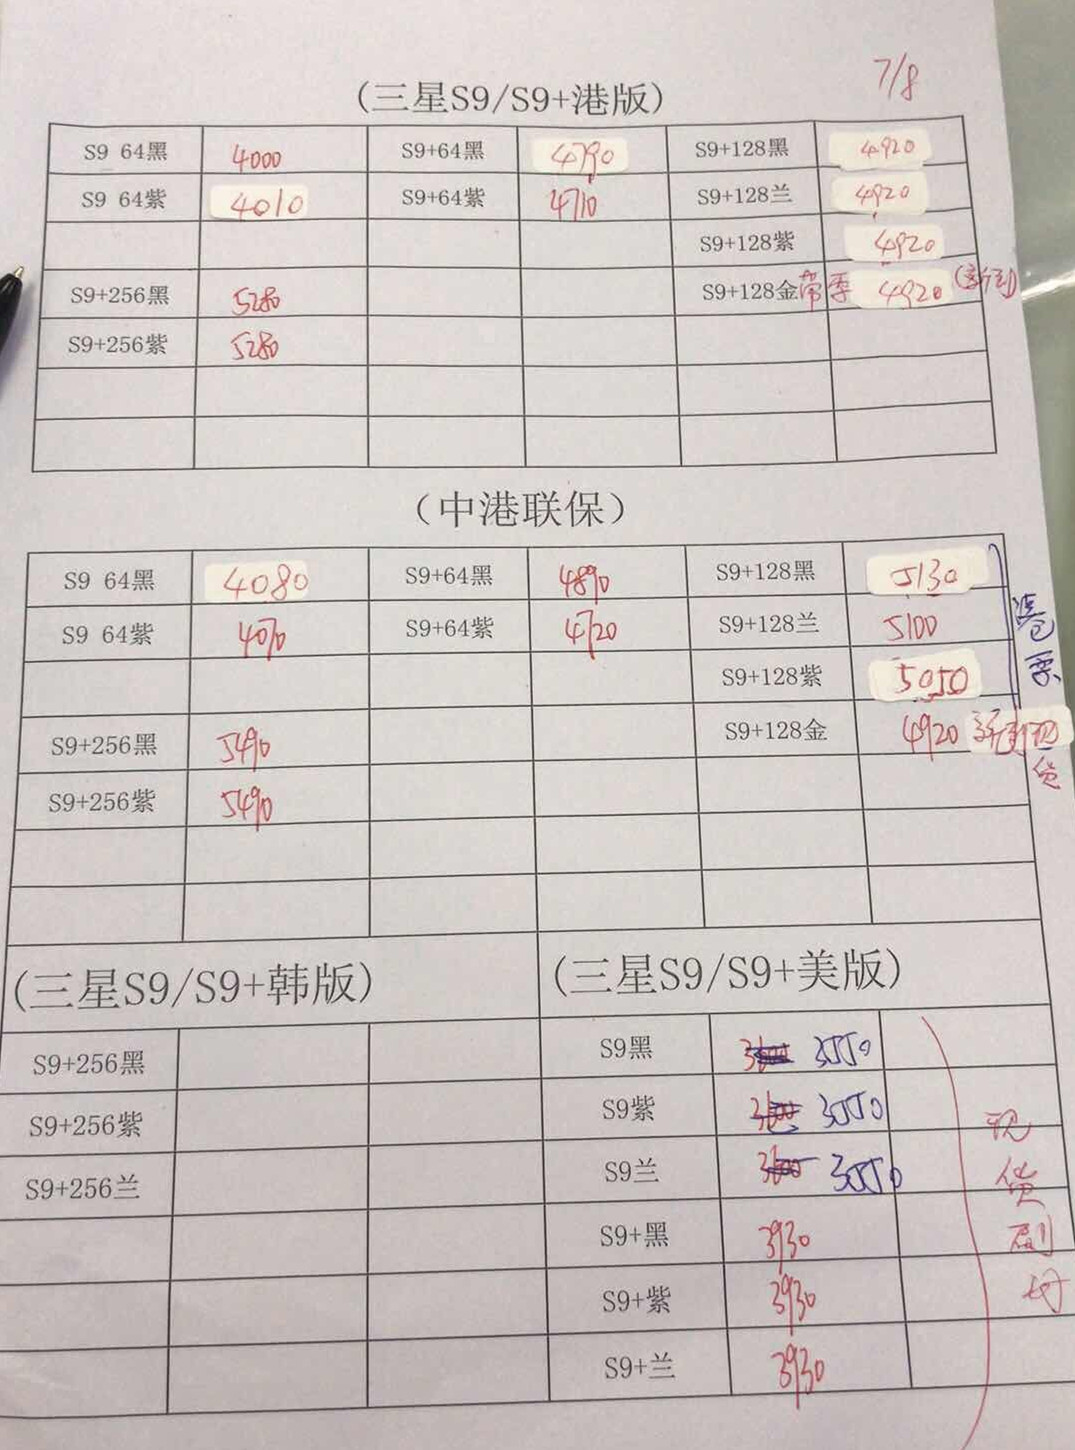 7/8
(三星S9/S9+港版)
S9 64黑 4000 S9+64黑 4790 S9+128黑 4920
S9 64紫 4010 S9+64紫 4710 S9+128兰 4920
S9+128紫 4920
S9+256黑 5280 S9+128金 带票 4920
S9+256紫 5280
(中港联保)
S9 64黑 4080 S9+64黑 4890 S9+128黑 5130
S9 64紫 4070 S9+64紫 4720 S9+128兰 5100
S9+128紫 5050
S9+256黑 5490 S9+128金 4920
S9+256紫 5490
(三星S9/S9+韩版) (三星S9/S9+美版)
S9+256黑 S9黑 3550
S9+256紫 S9紫 3550
S9+256兰 S9兰 3550
S9+黑 3930
S9+紫 3930
S9+兰 3930
现
货